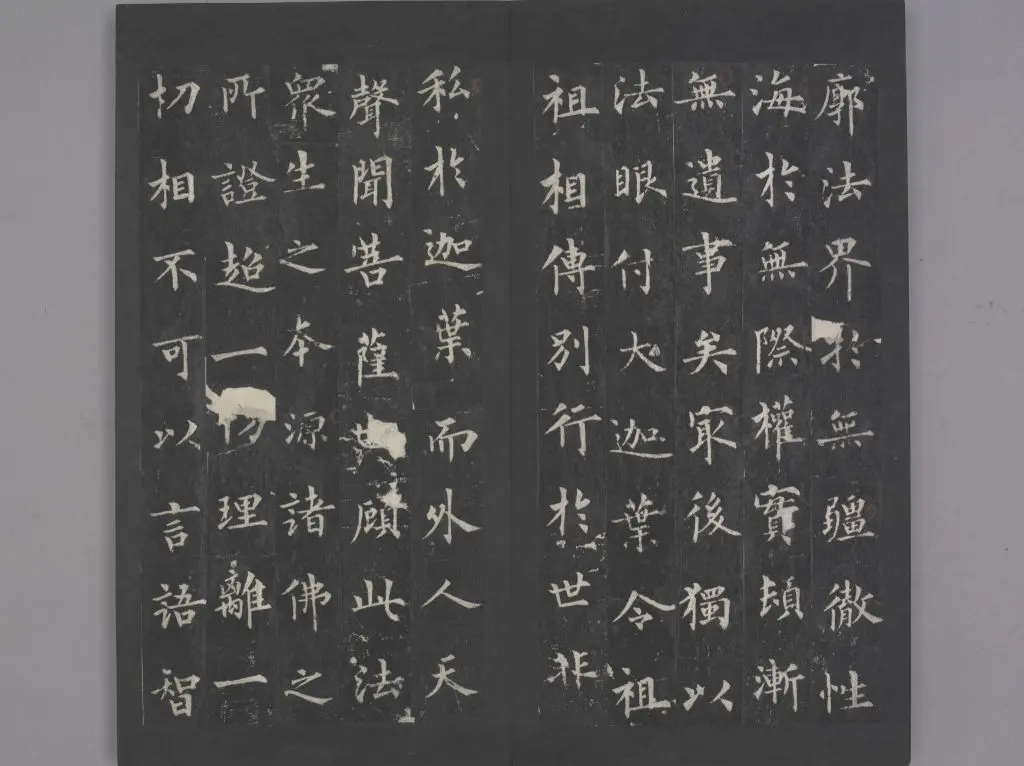 廓法界於無疆徹性
海於無際權實頓漸
無遺事矣冣後獨以
法眼付大迦葉令祖
祖相傳別行於世非
私於迦葉而外人天
聲聞菩薩顧此法
衆生之本源諸佛之
所證超一切理離一
切相不可以言語智